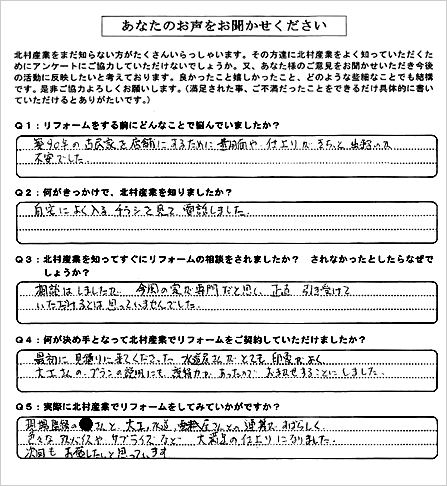 あなたのお声をお聞かせください
北村産業をまだ知らない方がたくさんいらっしゃいます。その方達に北村産業をよく知っていただくため
にアンケートにご協力していただけないでしょうか。又、あなた様のご意見をお聞かせいただき今後
の活動に反映したいと考えております。良かったこと嬉しかったこと、どのような些細なことでも結構
です。是非ご協力よろしくお願いします。(満足された事、ご不満だったことをできるだけ具体的に書い
ていただけるとありがたいです。)
Q1:リフォームをする前にどんなことで悩んでいましたか?
築90年の古民家を店舗にするために費用面や仕上りがきちんと出来るか
不安でした。
Q2:何がきっかけで、北村産業を知りましたか?
自宅によく入るチラシを見て電話しました。
Q3:北村産業を知ってすぐにリフォームの相談をされましたか? されなかったとしたらなぜで
しょうか?
相談はしましたが、今風の家が専門だと思い、正直 引き受けて
いただけるとは思っていませんでした。
Q4:何が決め手となって北村産業でリフォームをご契約していただけましたか?
最初に見積りに来てくださった水道屋さんがとても印象がよく
大工さんのプランの説明にも説得力があったのでお任せすることにしました。
Q5:実際に北村産業でリフォームをしてみていかがですか?
現場監督の さんと、大工、水道、電気屋さんとの連携がすばらしく
色々なアドバイスやサプライズなど 大満足の仕上りになりました。
次回もお願いしたいと思っています